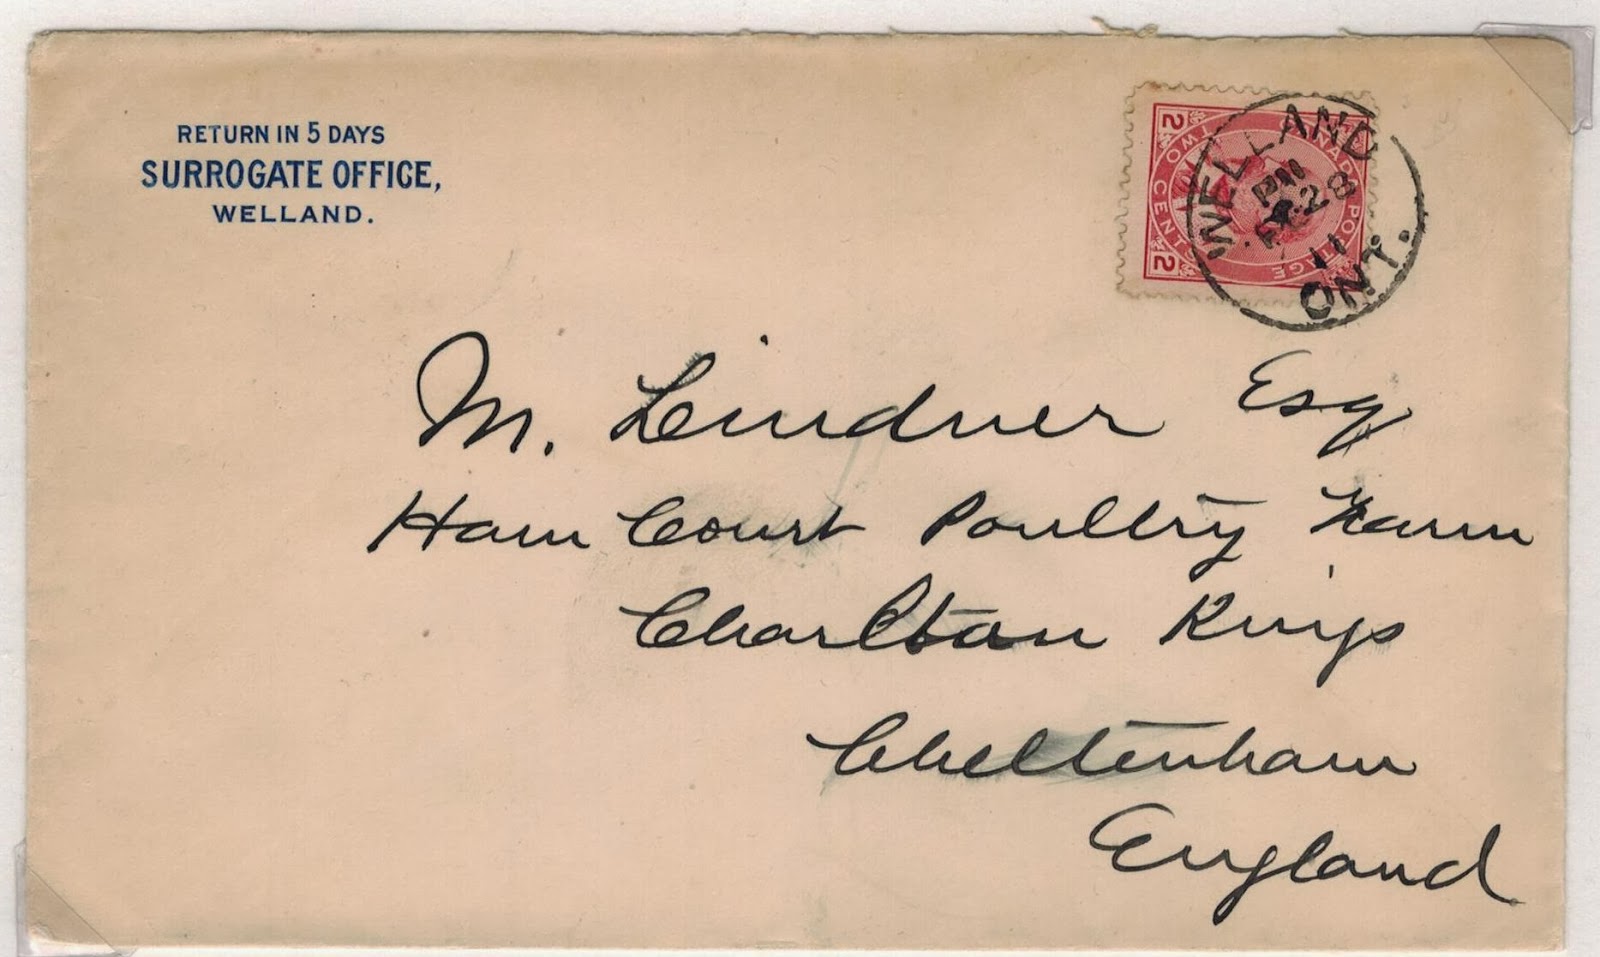 RETURN IN 5 DAYS
SURROGATE OFFICE,
WELLAND.
CANADA POSTAGE
TWO CENTS
2 2
WELLAND
PM
FE 28
11
ONT.
M. Lindner Esq
Ham Court Poultry Farm
Charlton Kings
Cheltenham
England